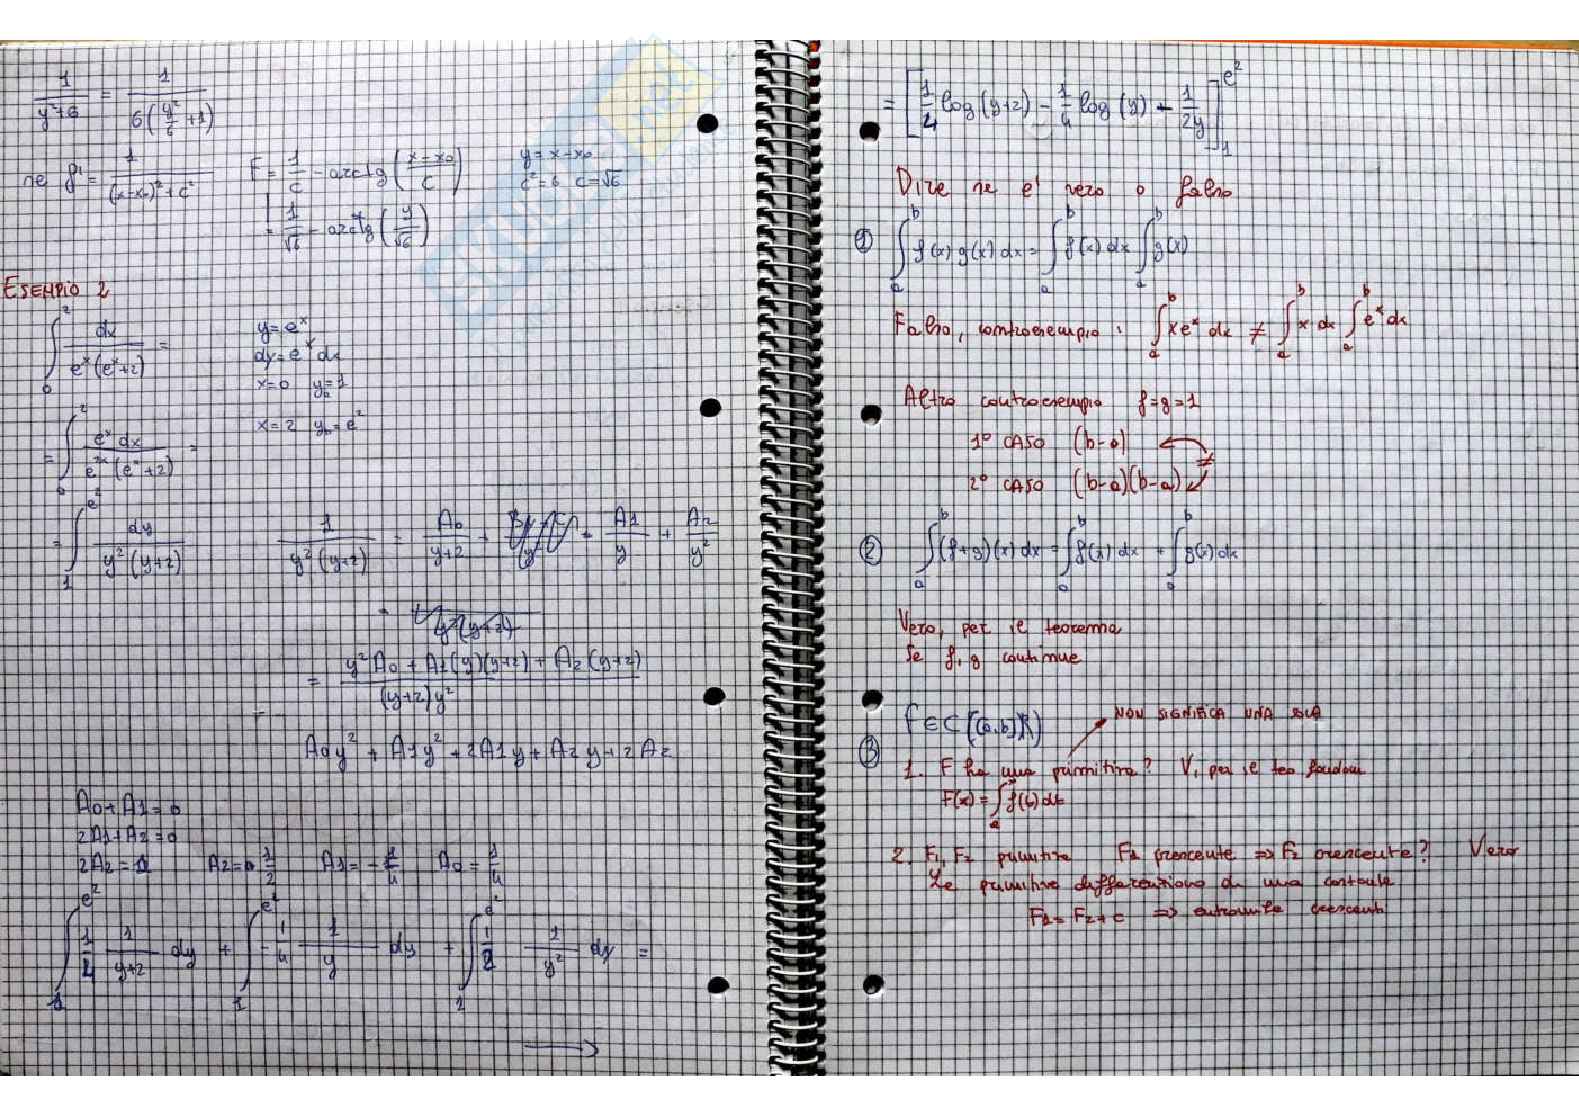 1/(y²+6) = 1/(6(y²/6 +1))
se f' = 1/((x-x₀)²+c²) F = 1/c - arctg((x-x₀)/c) y = x-x₀
c²=6 c=√6
= 1/√6 - arctg(y/√6)
ESEMPIO 2
∫₀² dx/(eˣ(eˣ+2)) = y=eˣ
dy=eˣ dx
x=0 yₐ=1
x=2 y_b=e²
= ∫₀² eˣ dx/(e²ˣ(eˣ+2)) =
= ∫₁^e² dy/(y²(y+2)) 1/(y²(y+2)) = A₀/(y+2) + A1/y + A2/y²
= (y²A₀ + A1(y)(y+2) + A2(y+2))/((y+2)y²)
A₀y² + A1y² + 2A1y + A2y + 2A2
A₀+A1=0
2A1+A2=0
2A2=1 A2=1/2 A1=-1/4 A₀=1/4
∫₁^e² 1/4 1/(y+2) dy + ∫₁^e² -1/4 1/y dy + ∫₁^e² 1/2 1/y² dy =
→
= [1/4 log(y+2) - 1/4 log(y) - 1/2y]₁^e²
Dire se e' vero o falso
① ∫ₐᵇ f(x) g(x) dx = ∫ₐᵇ f(x) dx ∫ₐᵇ g(x)
Falso, controesempio: ∫ₐᵇ x eˣ dx ≠ ∫ₐᵇ x dx ∫ₐᵇ eˣ dx
Altro controesempio f=g=1
1° CASO (b-a)
≠
2° CASO (b-a)(b-a)
② ∫ₐᵇ (f+g)(x) dx = ∫ₐᵇ f(x) dx + ∫ₐᵇ g(x) dx
Vero, per il teorema
Se f, g continue
f∈C([a,b],ℝ) NON SIGNIFICA UNA SOLA
③
1. F ha una primitiva? V, per il teo fondam
F(x) = ∫ₐˣ f(t) dt
2. F₁, F₂ primitive F1 crescente ⇒ F₂ crescente? Vero
Le primitive differenziano di una costante
F1 = F₂+c ⇒ entrambe crescenti